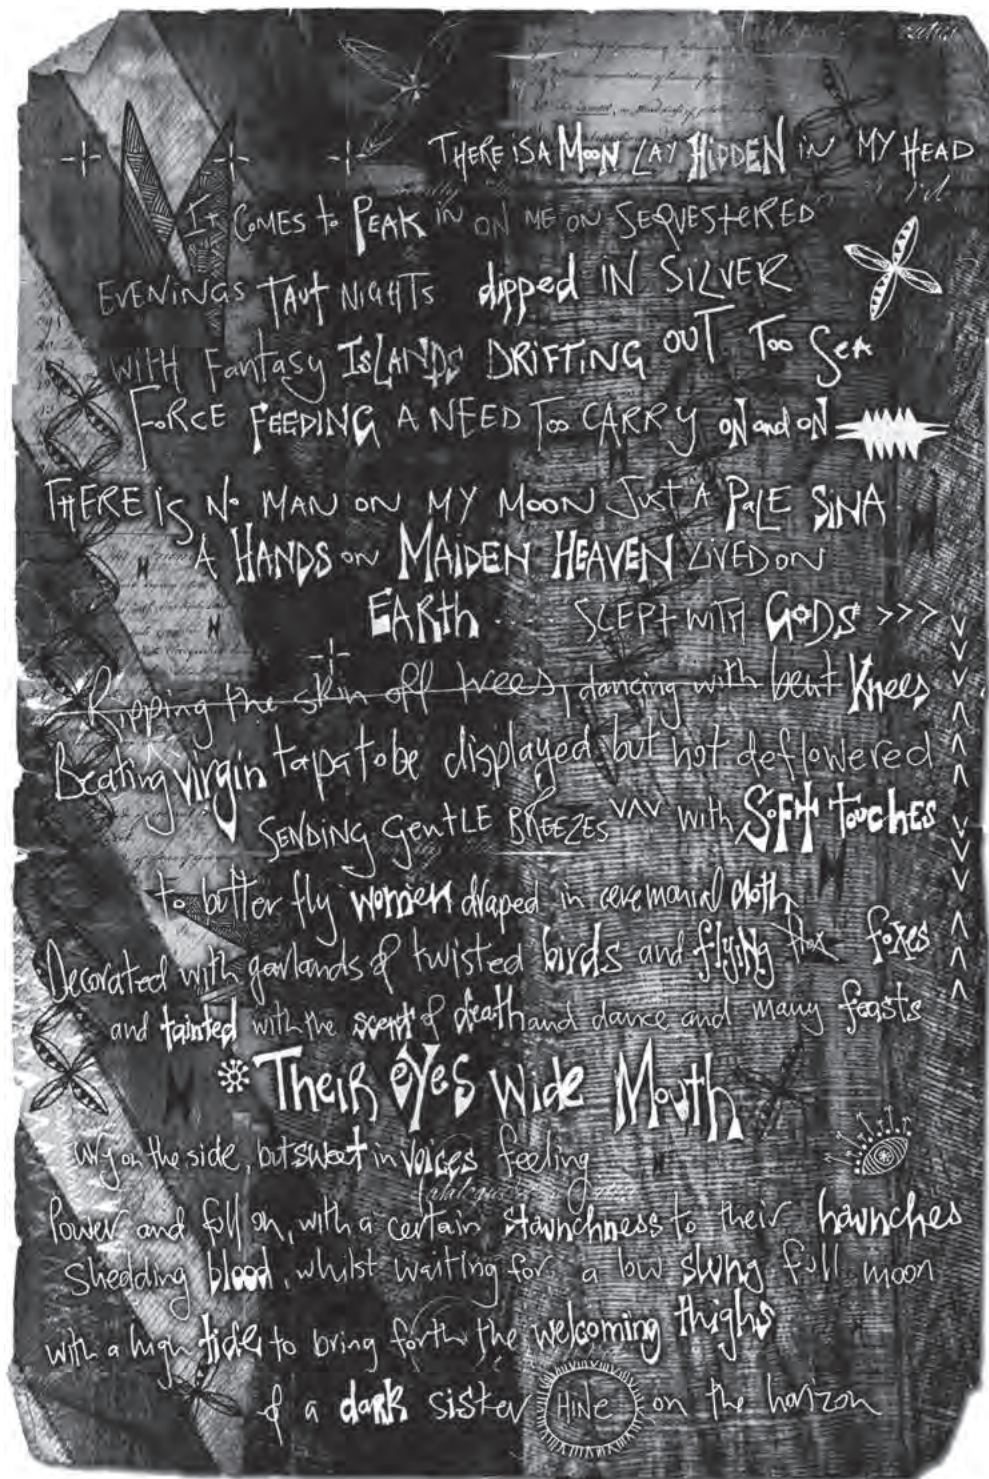 THERE iS A MOON LAY HiDDEN iN MY HEAD
It COMES to PEAK iN ON ME ON SEQUEStERED
EVENiNGS tAUt NiGHTS dipped IN SiLVER
WiTH Fantasy ISLANDS DRiFTiNG OUT Too SeA
FoRCE FEEDiNG A NEED Too CARRY oN and oN
THERE is No MAN ON MY MOON Just A PaLE SiNA
A HANDS on MAiDEN HEAVEN LiVED ON
EARth SLEPt WiTH GODS >>>
Ripping the skin off trees, dancing with bent Knees
Beating virgin tapa to be displayed but not deflowered
SENDiNG GentLE BREEZES VΛV with SOFT touches
to butter fly women draped in ceremonial cloth
Decorated with garlands of twisted birds and flying foxes
and tainted with the scent of death and dance and many feasts
Their eyes wide Mouth
wry on the side, but sweet in voices feeling
Power and full on, with a certain staunchness to their haunches
Shedding blood, whilst waiting for a low slung full moon
with a high tide to bring forth the welcoming thighs
of a dark sister HiNE on the horizon